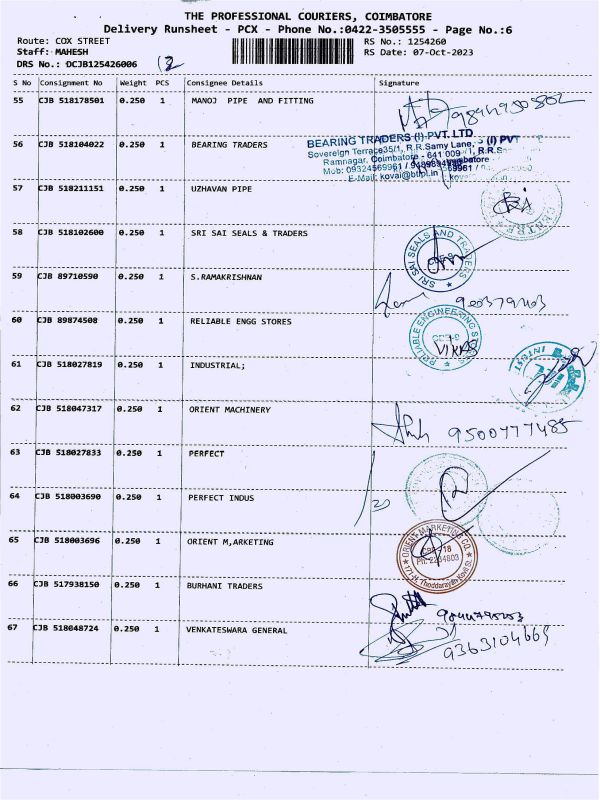 THE PROFESSIONAL COURIERS, COIMBATORE
Delivery Runsheet - PCX - Phone No.:0422-3505555 - Page No.:6
Route: COX STREET RS No.: 1254260
Staff: MAHESH RS Date: 07-Oct-2023
DRS No.: DCJB125426006
S No Consignment No Weight PCS Consignee Details Signature
55 CJB 518178501 0.250 1 MANOJ PIPE AND FITTING
56 CJB 518104022 0.250 1 BEARING TRADERS
BEARING TRADERS (I) PVT. LTD.
Sovereign Terrace35/1, R.R.Samy Lane,
Ramnagar, Coimbatore - 641 009
E-Mail: kovai@btipl.in
57 CJB 518211151 0.250 1 UZHAVAN PIPE
CENTRE
58 CJB 518102600 0.250 1 SRI SAI SEALS & TRADERS
SRI SAI SEALS AND TRADERS
59 CJB 89710590 0.250 1 S.RAMAKRISHNAN
60 CJB 89874508 0.250 1 RELIABLE ENGG STORES
RELIABLE ENGINEERING
VIKAS
61 CJB 518027819 0.250 1 INDUSTRIAL;
62 CJB 518047317 0.250 1 ORIENT MACHINERY
9500777485
63 CJB 518027833 0.250 1 PERFECT
64 CJB 518003690 0.250 1 PERFECT INDUS
65 CJB 518003696 0.250 1 ORIENT M,ARKETING
ORIENT MARKETING CO.
66 CJB 517938150 0.250 1 BURHANI TRADERS
67 CJB 518048724 0.250 1 VENKATESWARA GENERAL
9363104663